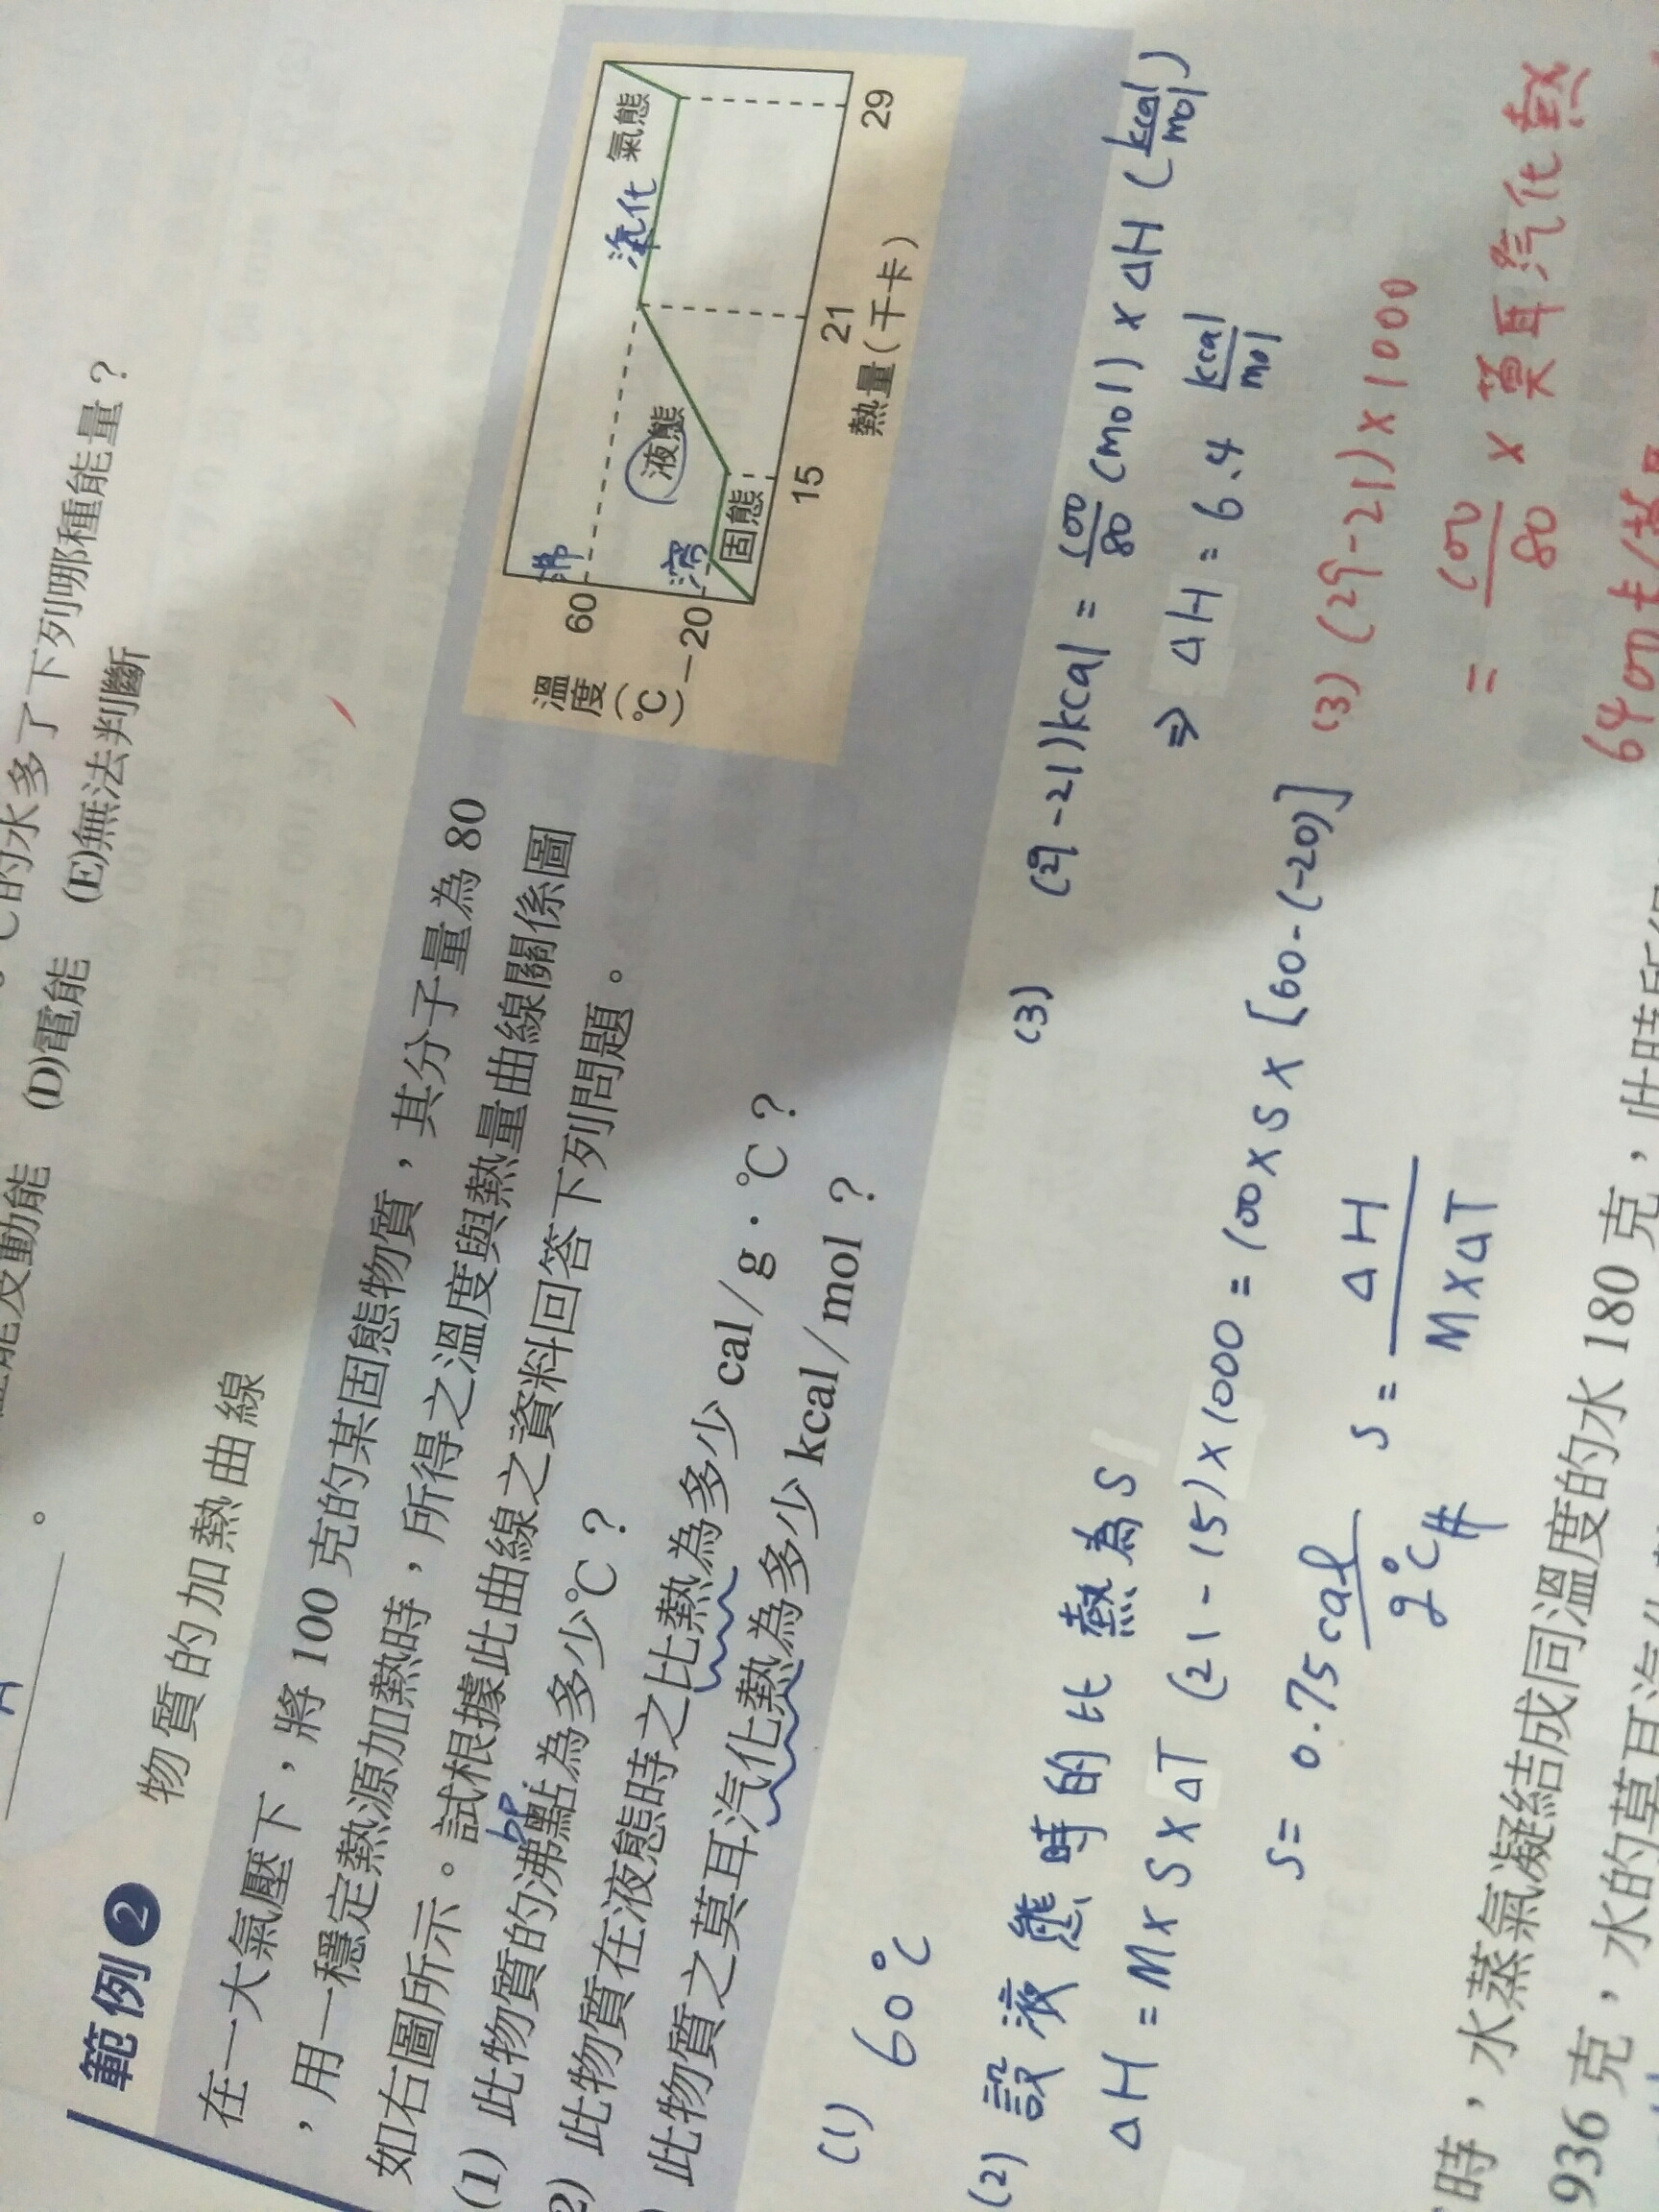 的水多了下列哪種能量？
能及動能 (D)電能 (E)無法判斷
範例2 物質的加熱曲線
在一大氣壓下，將 100 克的某固態物質，其分子量為 80
，用一穩定熱源加熱時，所得之溫度與熱量曲線關係圖
如右圖所示。試根據此曲線之資料回答下列問題。
bp
(1) 此物質的沸點為多少℃？
2) 此物質在液態時之比熱為多少 cal/g．℃？
) 此物質之莫耳汽化熱為多少 kcal/mol？
溫度(℃)
60
-20
沸
溶
固態
液態
汽化
氣態
15
21
29
熱量(千卡)
(1) 60℃
(2) 設液態時的比熱為S
ΔH = M×S×ΔT (21-15)×1000 = 100×S×[60-(-20)]
S = 0.75 cal/g℃ #
S = ΔH/M×ΔT
(3) (29-21)kcal = 100/80 (mol) × ΔH (kcal/mol)
⇒ ΔH = 6.4 kcal/mol
(3) (29-21)×1000
= 100/80 × 莫耳汽化熱
6400卡/莫耳
時，水蒸氣凝結成同溫度的水 180 克，此時所
936 克，水的莫耳汽化